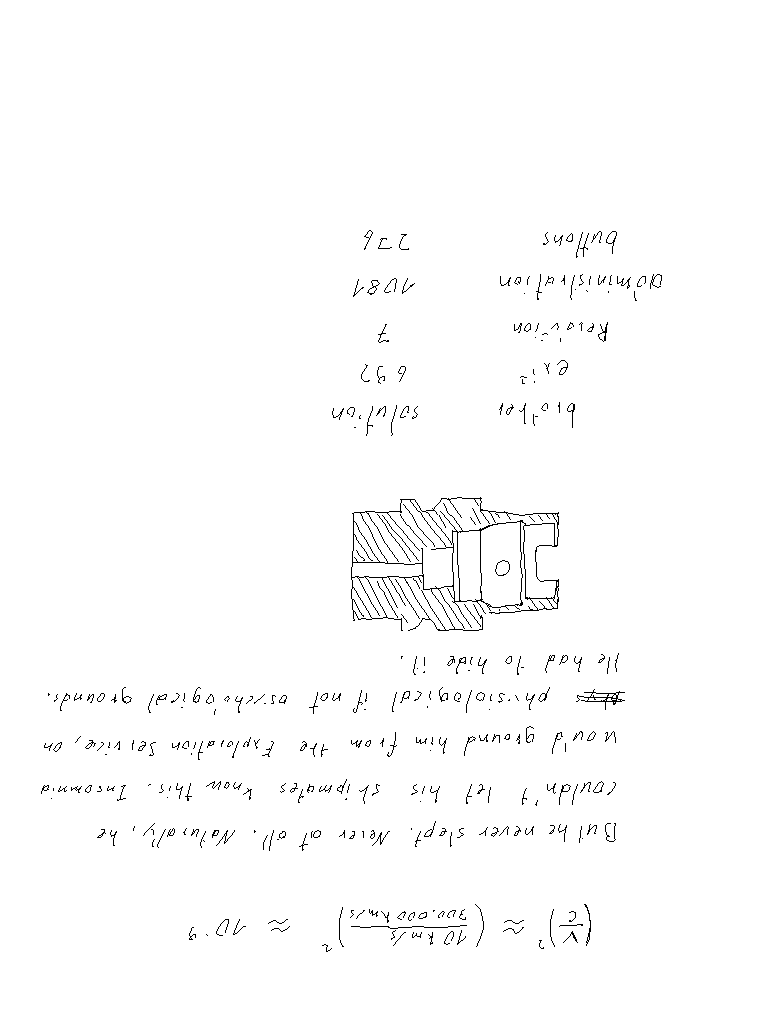 (v/c)² ≈ (10 km/s / 300.000 km/s)² ≈ 10⁻⁹
But he never slept. Never at all. Naturally, he
couldn't let his shipmates know this. Insomnia
would ground him from the Exploration Service, on
physiological if not psychological grounds.
He had to hide it.
brother solution
692
7
administration 1081
buttons 276